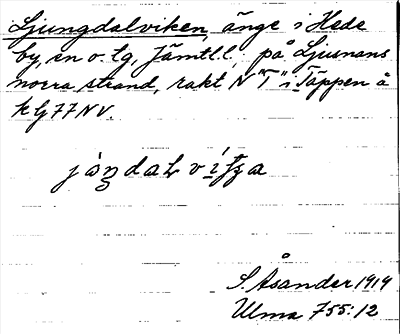 Ljungdalviken, änge i Hede
by, sn o. tg, Jämtl.l. på Ljusnans
norra strand, rakt N "T" i Täppen å
k bj 77 NV.
S. Åsander 1919
Ulma 755:12